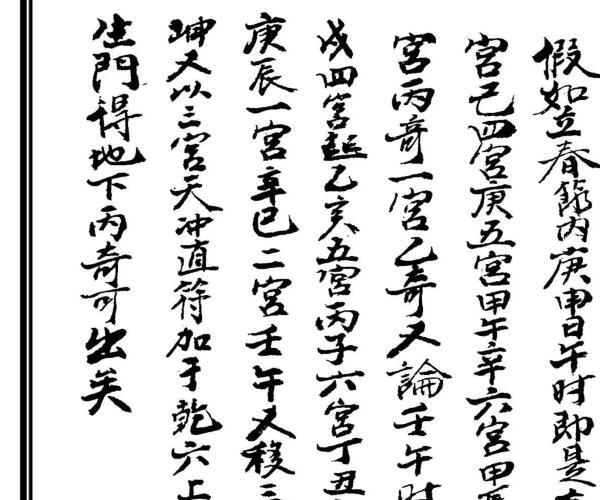 假如立春節內庚申日午时即是
宮己四宮庚五宮甲午辛六宮甲
宮丙奇一宮乙奇又論壬午时
戌四宮起乙亥五宮丙子六宮丁丑
庚辰一宮辛巳二宮壬午又移三
坤又以三宮天冲直符加于乾六上
生門得地下丙奇可出矣